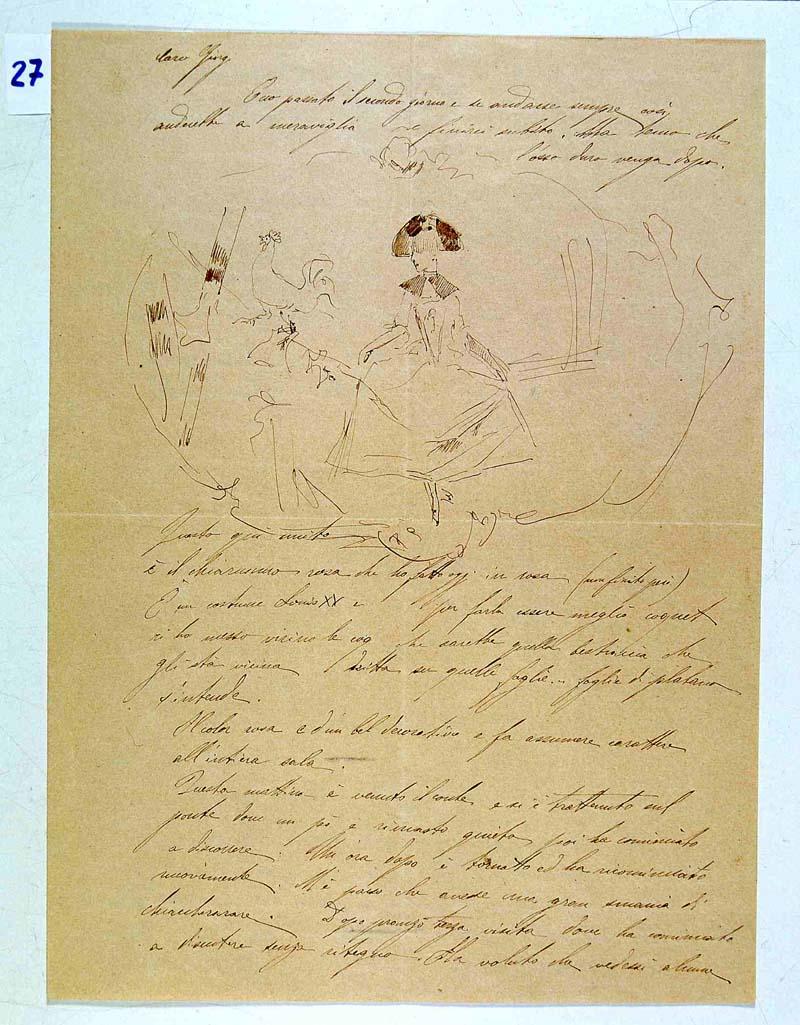 27
Caro Giorg.
Ecco passato il secondo giorno e se andasse sempre così
anderebbe a meraviglia e finirei subito. Ma temo che
l'osso duro venga dopo.
Questo qui unito
È il chiarissimo rosa che ho fatto oggi in rosa (non finito più)
È un costume Louis XV e per farla essere meglio coquet
ci ho messo vicino le coq che sarebbe quella bestiaccia che
gli sta vicina dritta su quelle foglie... foglie di platano
s'intende.
Il color rosa è d'un bel decorativo e fa assumere carattere
all'intiera sala.
Questa mattina è venuto il conte e si è trattenuto sul
ponte dove un pò è rimasto quieto, poi ha cominciato
a discorrere. Un'ora dopo è tornato ed ha ricominciato
nuovamente. M'è parso che avesse una gran smania di
chiacchierare. Dopo pranzo terza visita dove ha cominciato
a discutere senza ritegno. Ha voluto che vedessi alcune